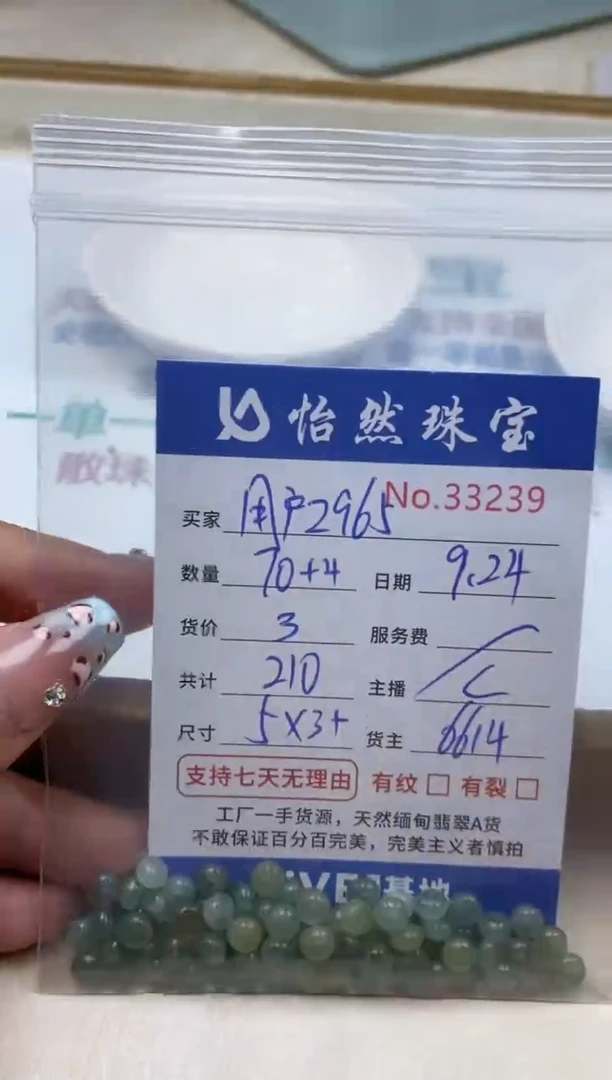 怡然珠宝
No.33239
买家 用户2965
数量 70+4 日期 9.24
货价 3 服务费 /
共计 210 主播 C
尺寸 5X3+ 货主 6614
支持七天无理由 有纹 □ 有裂 □
工厂一手货源，天然缅甸翡翠A货
不敢保证百分百完美，完美主义者慎拍
基地
单
散珠